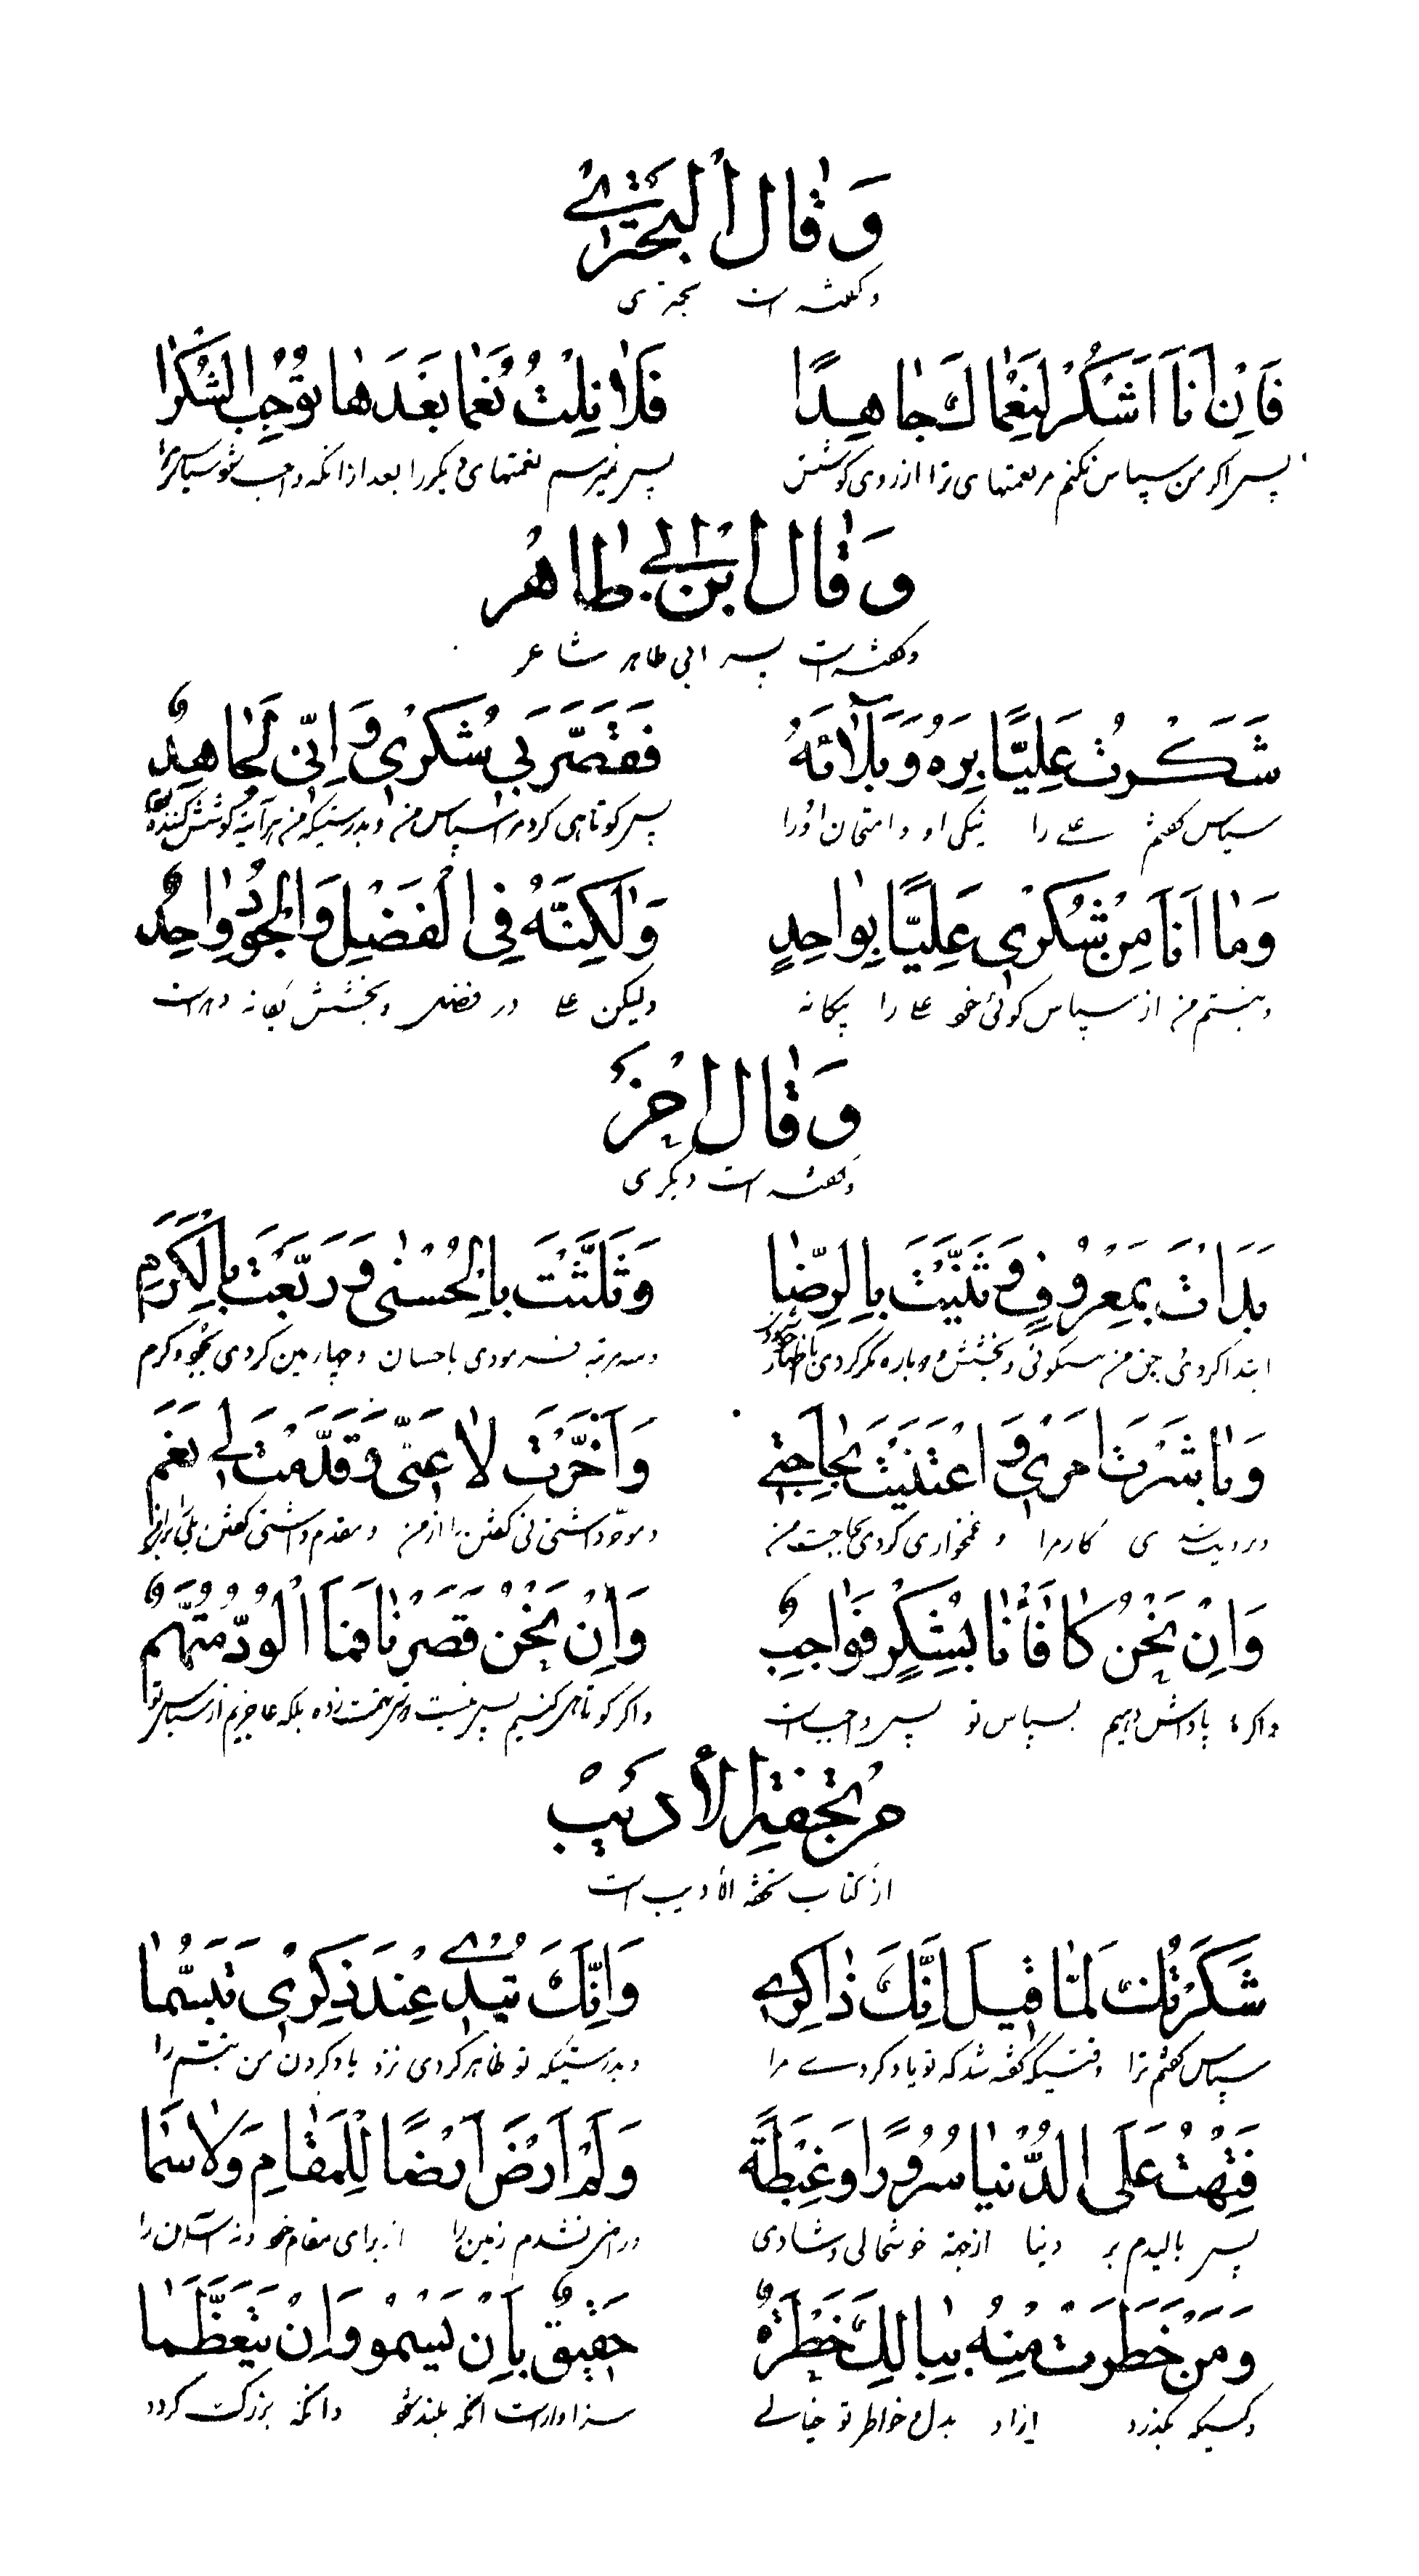 وَقٰالَ الْبُحْتُرِيُّ
وگفته است بحتری
فَاِنْ اَنَا اَشْكُرْ لِنَعْمٰاكَ جٰاهِدًا فَلٰا نِلْتُ نُعْمٰا بَعْدَهٰا تُوْجِبُ الشُّكْرٰا
پس اگر من سپاس نکنم مر نعمتهای ترا از روی کوشش پس نمیرسم نعمتهای دیگر را بعد از آنکه واجب شود سپاس را
وَقٰالَ ابْنُ اَبِي طٰاهِرْ
وگفته است پسر ابی طاهر شاعر
شَكَرْتُ عَلِيًّا بِرَهُ وَبَلٰآئَهُ فَقَصَّرَ بَي شُكْرِيْ وَاِنّي لَجٰاهِدٌ
سپاس گفتم علی را نیکی او و امتحان او را پس کوتاهی کرد مرا سپاس من و بدرستیکه من هرآینه کوشش کننده
وَمٰا اَنَا مِنْ شُكْرِيْ عَلِيًّا بِوٰاحِدٍ وَلٰكِنَّهُ فِي الْفَضْلِ وَالْجُوْدِ وٰاحِدٌ
و نیستم من از سپاس گوئی خود علی را یگانه ولیکن علی در فضل و بخشش یگانه دهر است
وَقٰالَ اخَرُ
وگفته است دیگری
بَدَاْتَ بِمَعْرُوْفٍ وَثَنَّيْتَ بِالرِّضٰا وَثَلَّثْتَ بِالْحُسْنٰى وَرَبَّعْتَ بِالْكَرَمِ
ابتدا کردی بمن نیکوئی و بخشش و دوباره مکرر کردی باظهار خوشنودی و سه مرتبه فرمودی باحسان و چهارمین کردی بجود و کرم
وَبٰاشَرْتَ اَمْرِيْ وَاعْتَنَيْتَ بِحٰاجَتِي وَاَخَّرْتَ لٰا عَنّي وَقَدَّمْتَ لِي نَعَمْ
کار مرا و غمخواری کردی بحاجت من و موخر داشتی نی گفتن را از من و مقدم داشتی گفتن بلی برای من
وَاِنْ نَحْنُ كٰافَأْنٰا بِشُكْرٍ فَوٰاجِبٌ وَاِنْ نَحْنُ قَصَّرْنٰا فَمَا الْوُدُّ مُتَّهَمٌ
و اگر ما پاداش دهیم بسپاس تو پس واجب است و اگر کوتاهی کنیم پس نیست دوستی تهمت زده بلکه عاجزیم از سپاس تو
مِنْ تُحْفَةِ الْأَدَيبْ
از کتاب تحفة الأدیب است
شَكَرْتُكَ لَمّٰا قِيلَ اِنَّكَ ذٰاكِرِي وَاِنَّكَ تُبْدِي عِنْدَ ذِكْرِيْ تَبَسُّمٰا
سپاس گفتم ترا وقتیکه گفته شد که تو یاد کردی مرا و بدرستیکه تو ظاهر کردی نزد یاد کردن من تبسم را
فَتِهْتُ عَلَى الدُّنْيٰا سُرُوْرًا وَغِبْطَةً وَلَمْ اَرْضَ اَرْضًا لِلْمَقٰامِ وَلٰا سَمٰا
پس بالیدم بر دنیا از جهة خوشحالی و شادی و راضی نشدم زمین را از برای مقام خود و نه آسمان را
وَمَنْ خَطَرَتْ مِنْهُ بِبٰالِكَ خَطْرَةٌ حَقِيقٌ بِاَنْ يَسْمُوْ وَاِنْ يَتَعَظَّمٰا
وکسیکه بگذرد از او بدل و خاطر تو خیالی سزاوار است آنکه بلند شود و آنکه بزرگ گردد